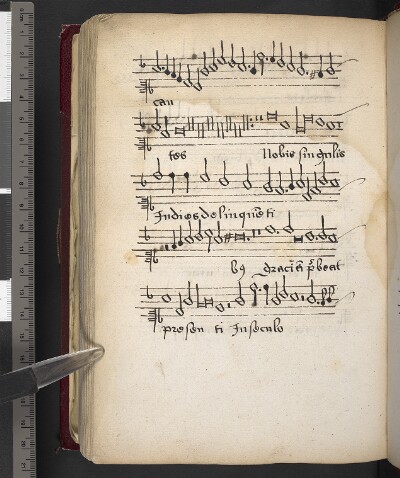 can
tes Nobis singulis
Indies delinquēti
bꝫ graciā p̄beat
presen ti In seculo